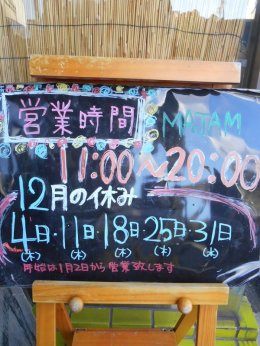 営業時間
MATAM
11:00〜20:00
12月の休み
4日・11日・18日・25日・31日
(木) (木) (木) (木) (水)
年始は1月2日から営業致します